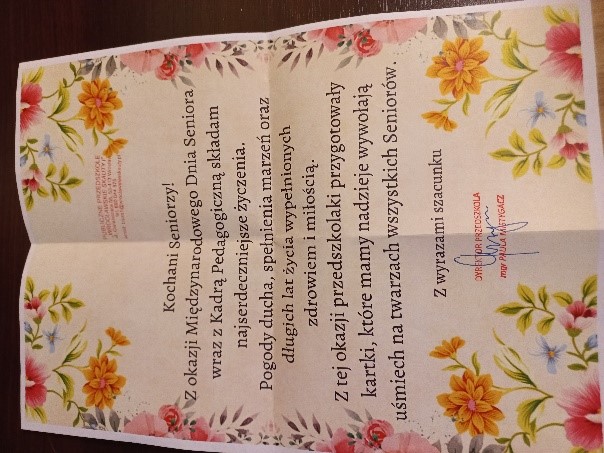 PUBLICZNE PRZEDSZKOLE
Kochani Seniorzy!
Z okazji Międzynarodowego Dnia Seniora
wraz z Kadrą Pedagogiczną składam
najserdeczniejsze życzenia.
Pogody ducha, spełnienia marzeń oraz
długich lat życia wypełnionych
zdrowiem i miłością.
Z tej okazji przedszkolaki przygotowały
kartki, które mamy nadzieje wywołają
uśmiech na twarzach wszystkich Seniorów.
Z wyrazami szacunku
DYREKTOR PRZEDSZKOLA
mgr PAULA